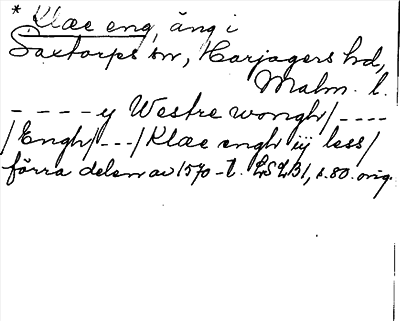 * Klæe eng, äng i
Saxtorps sn, Harjagers hd,
Malm. l.
- - - - y Westre wongh/ - - - -
/Engh/ - - -/ Klæe engh iij less/
förra delen av 1570-t. LSLB1, s. 80. orig.